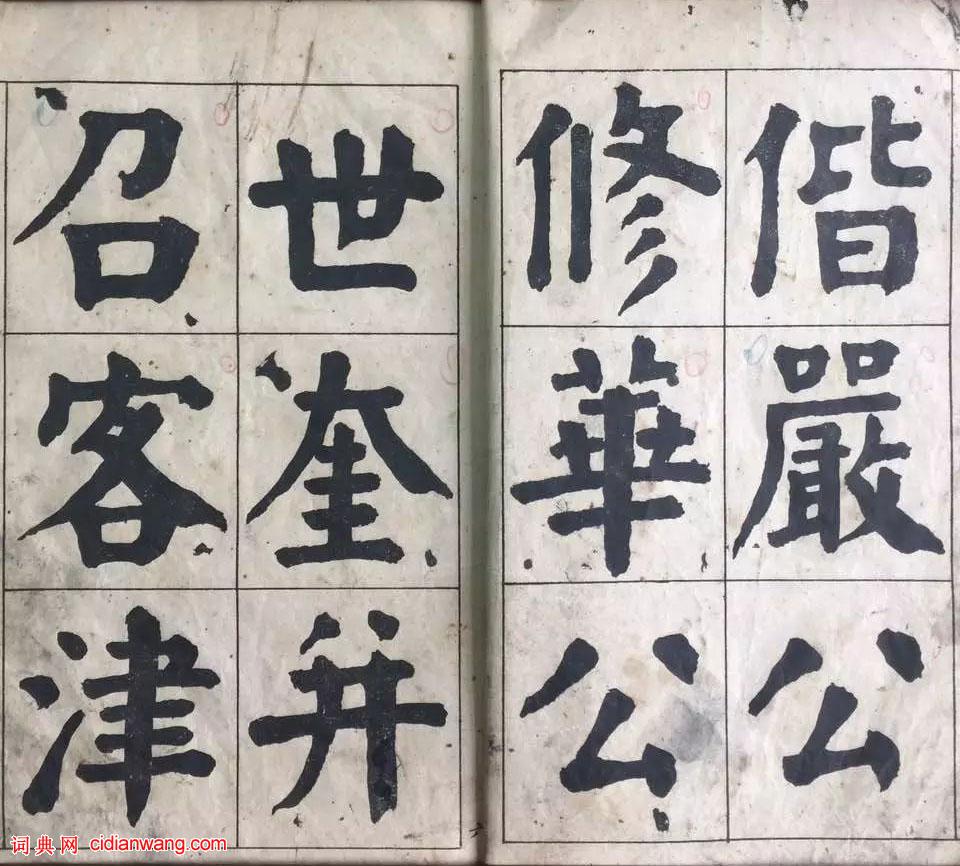 偕嚴公
修華公
世奎并
召客津
词典网 cidianwang.com